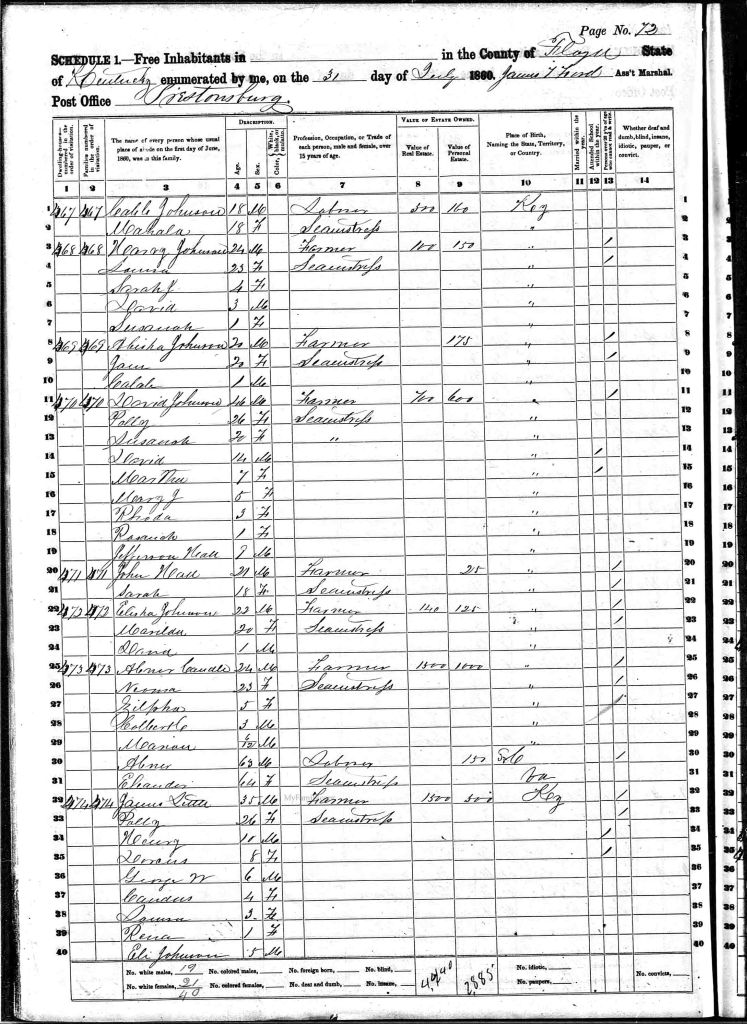 Page No. 72
SCHEDULE 1.—Free Inhabitants in in the County of Floyd State
of Kentucky enumerated by me, on the 31 day of July 1860. James Ass't Marshal.
Post Office Prestonsburg.
Dwelling-houses—numbered in the order of visitation. Families numbered in the order of visitation. The name of every person whose usual place of abode on the first day of June, 1860, was in this family. DESCRIPTION. Age. Sex. Color, White, black, or mulatto. Profession, Occupation, or Trade of each person, male and female, over 15 years of age. VALUE OF ESTATE OWNED. Value of Real Estate. Value of Personal Estate. Place of Birth, Naming the State, Territory, or Country. Married within the year. Attended School within the year. Persons over 20 y'rs of age who cannot read & write. Whether deaf and dumb, blind, insane, idiotic, pauper, or convict.
1 2 3 4 5 6 7 8 9 10 11 12 13 14
1 467 467 Johnson 18 M Labror 300 100 Key 1
2 Mahala 18 F Seamstress " 2
3 468 468 Henry Johnson 24 M Farmer 100 150 " / 3
4 Louisa 23 F Seamstress " / 4
5 Sarah J 4 F " 5
6 David 3 M " 6
7 Susanah 1 F " 7
8 469 469 Abisha Johnson 20 M Farmer 175 " / 8
9 Jane 20 F Seamstress " / 9
10 1 M " 10
11 470 470 David Johnson 46 M Farmer 700 600 " / 11
12 Polly 26 F Seamstress " 12
13 Susanah 20 F " " 13
14 David 14 M " / 14
15 Martha 7 F " / 15
16 Mary J 5 F " 16
17 Rhoda 3 F " 17
18 1 F " 18
19 Jefferson Hall 9 M " 19
20 471 471 John Hall 21 M Farmer 25 " / 20
21 Sarah 18 F Seamstress " / 21
22 472 472 Elisha Johnson 22 M Farmer 140 125 " / 22
23 20 F Seamstress " / 23
24 David 1 M " 24
25 473 473 Abner Caudle 24 M Farmer 1500 1000 " / 25
26 Neoma 23 F Seamstress " / 26
27 Zilpha 5 F " / 27
28 3 M " 28
29 Marion 6/12 M " 29
30 Abner 63 M Labror 150 / 30
31 64 F Seamstress Va 31
32 474 474 James 35 M Farmer 1500 500 Key / 32
33 Polly 26 F Seamstress / 33
34 Henry 10 M / 34
35 Dorcus 8 F / 35
36 George W 6 M 36
37 Candus 4 F 37
38 Louisa 3 F 38
39 Rena 1 F 39
40 Eli Johnson 5 M 40
No. white males, 19 No. colored males, No. foreign born, No. blind, 4440 2885 No. idiotic, No. convicts,
No. white females, 21 No. colored females, No. deaf and dumb, No. insane, No. paupers,
40